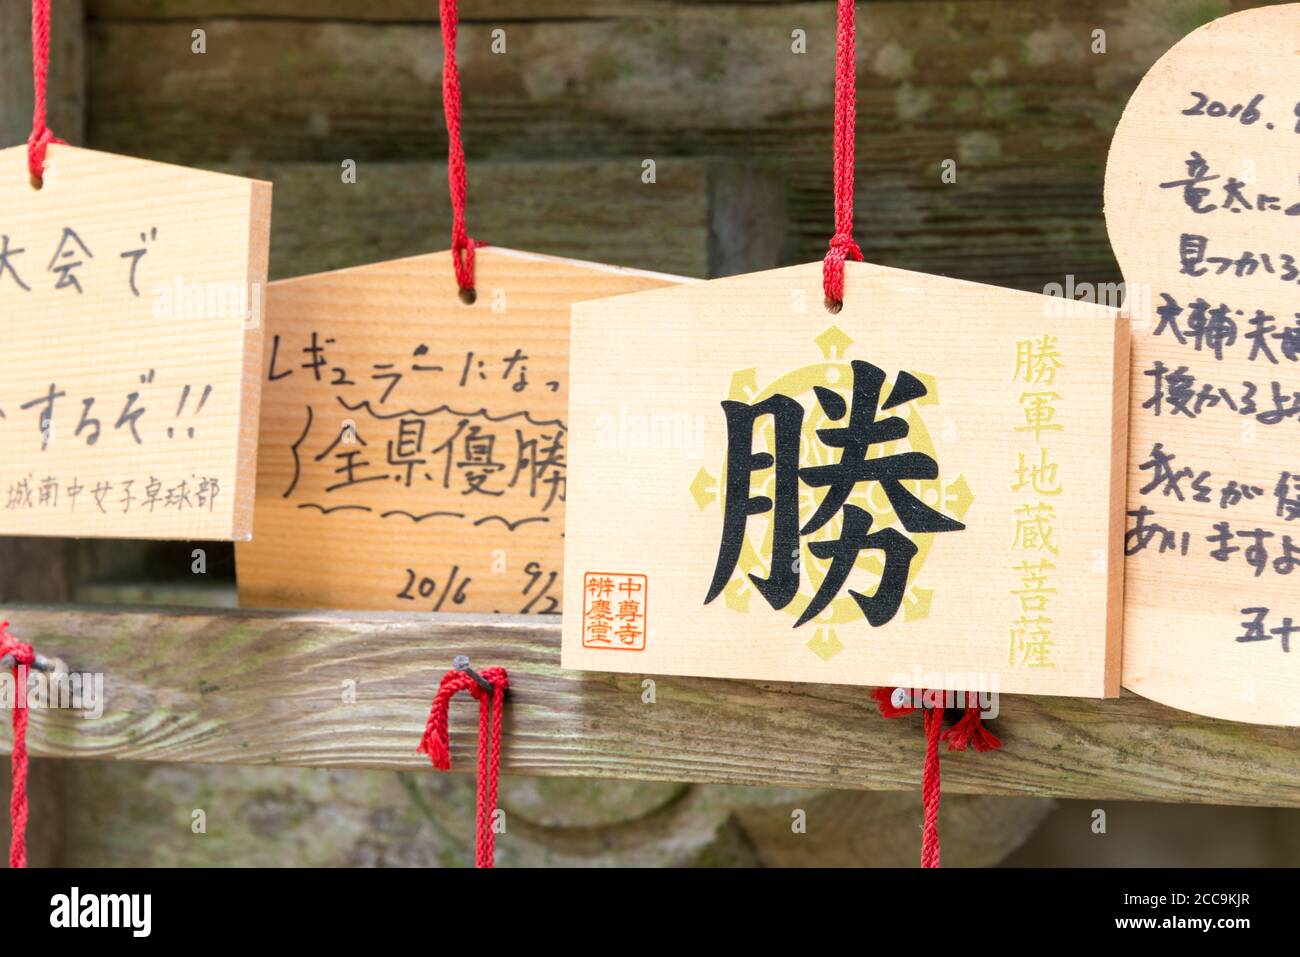 大会で
するぞ!!
城南中女子卓球部
レギュラーになっ
全県優勝
2016 9/2
勝
勝軍地蔵菩薩
中尊寺
辨慶堂
2016.
竜太に
見つかる
大輔夫
授かるよ
我々が
あいますよ
五十
alamy
Image ID: 2CC9KJR
www.alamy.com